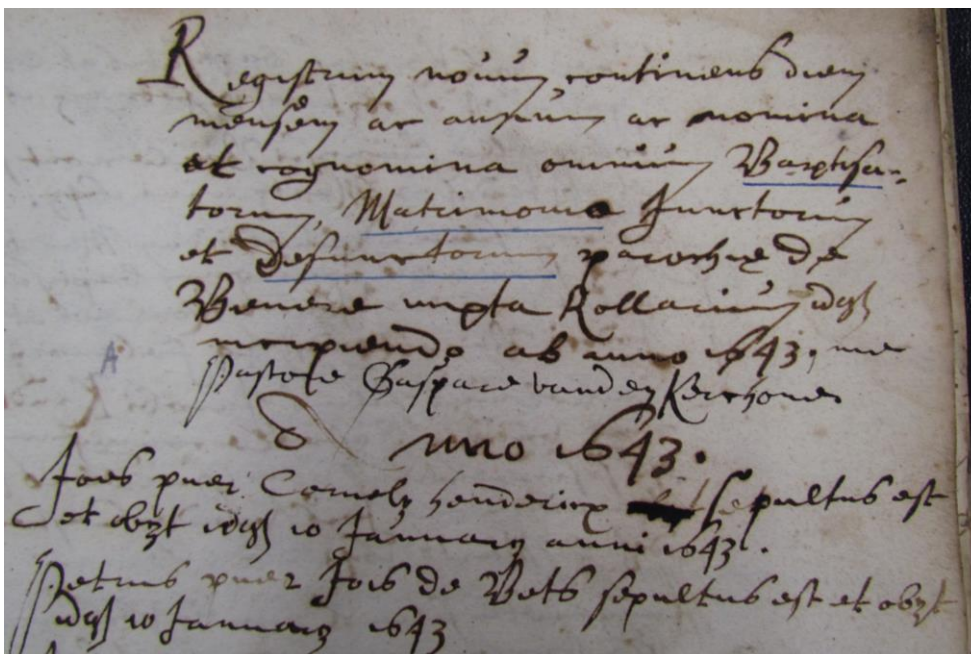 Registrum novum, continens diem
mensem ac annum ac nomina
et cognomina omnium Baptisa-
torum, Matrimonio Junctorum
et Defunctorum parochię de
Bevere iuxta Rollarium
incipiendo ab anno 1643, me
Pastore Gaspare vanden Kerchove
Anno 1643.
Joēs puer Cornelij hendericx sepultus est
et obijt 10 Januarij anni 1643.
Petrus puer Joīs de Bets sepultus est et obijt
10 Januarij 1643
A